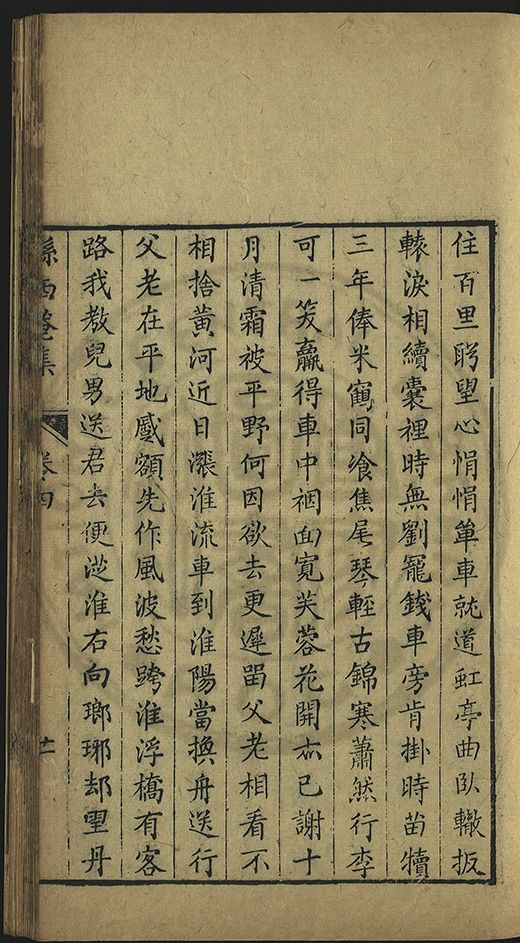 住百里盻望心悁悁單車就道虹亭曲臥轍扳
轅淚相續囊裡時無劉寵錢車旁肯掛時苗犢
三年俸米寉同飡焦尾琴輕古錦寒蕭然行李
可一笑羸得車中裀面寬芙蓉花開亦已謝十
月清霜被平野何因欲去更遲留父老相看不
相捨黃河近日漲淮流車到淮陽當換舟送行
父老在平地感額先作風波愁跨淮浮橋有客
路我教兒男送君去便泝淮右向瑯琊却望丹
孫西菴集 卷四 十一